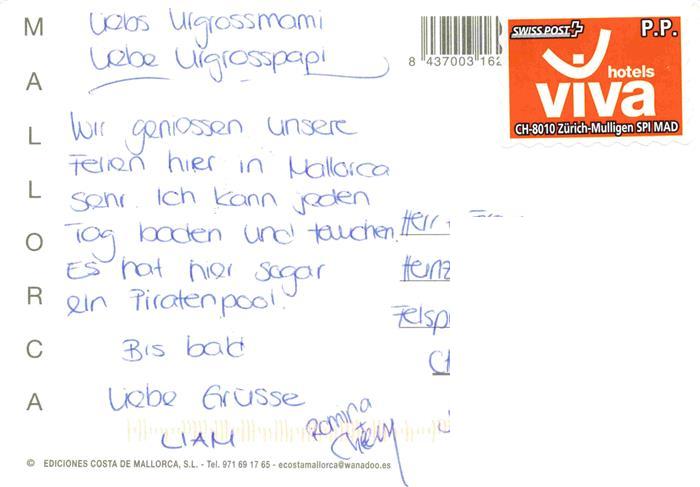 MALLORCA
Liebs Urgrossmami
Liebe Urgrosspapi
Wir geniessen unsere
Ferien hier in Mallorca
sehr. Ich kann jeden
Tag baden und tauchen.
Es hat hier sogar
ein Piratenpool.
Bis bald
Liebe Grüsse
LIAM
Romina
8 437003 162
SWISS POST P.P.
hotels
viva
CH-8010 Zürich-Mulligen SPI MAD
Herr
Heinz
Felsp
CH
© EDICIONES COSTA DE MALLORCA, S.L. - Tel. 971 69 17 65 - ecostamallorca@wanadoo.es